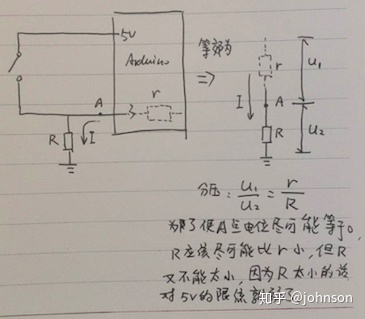 5V
Arduino
等效为
⇒
r
A
I
R
r
I
A
R
U₁
U₂
分压: U₁/U₂ = r/R
为了使A点电位尽可能等于0,
R应该尽可能比r小,但R
又不能太小,因为R太小的话
对5V的限流就
知乎 @johnson